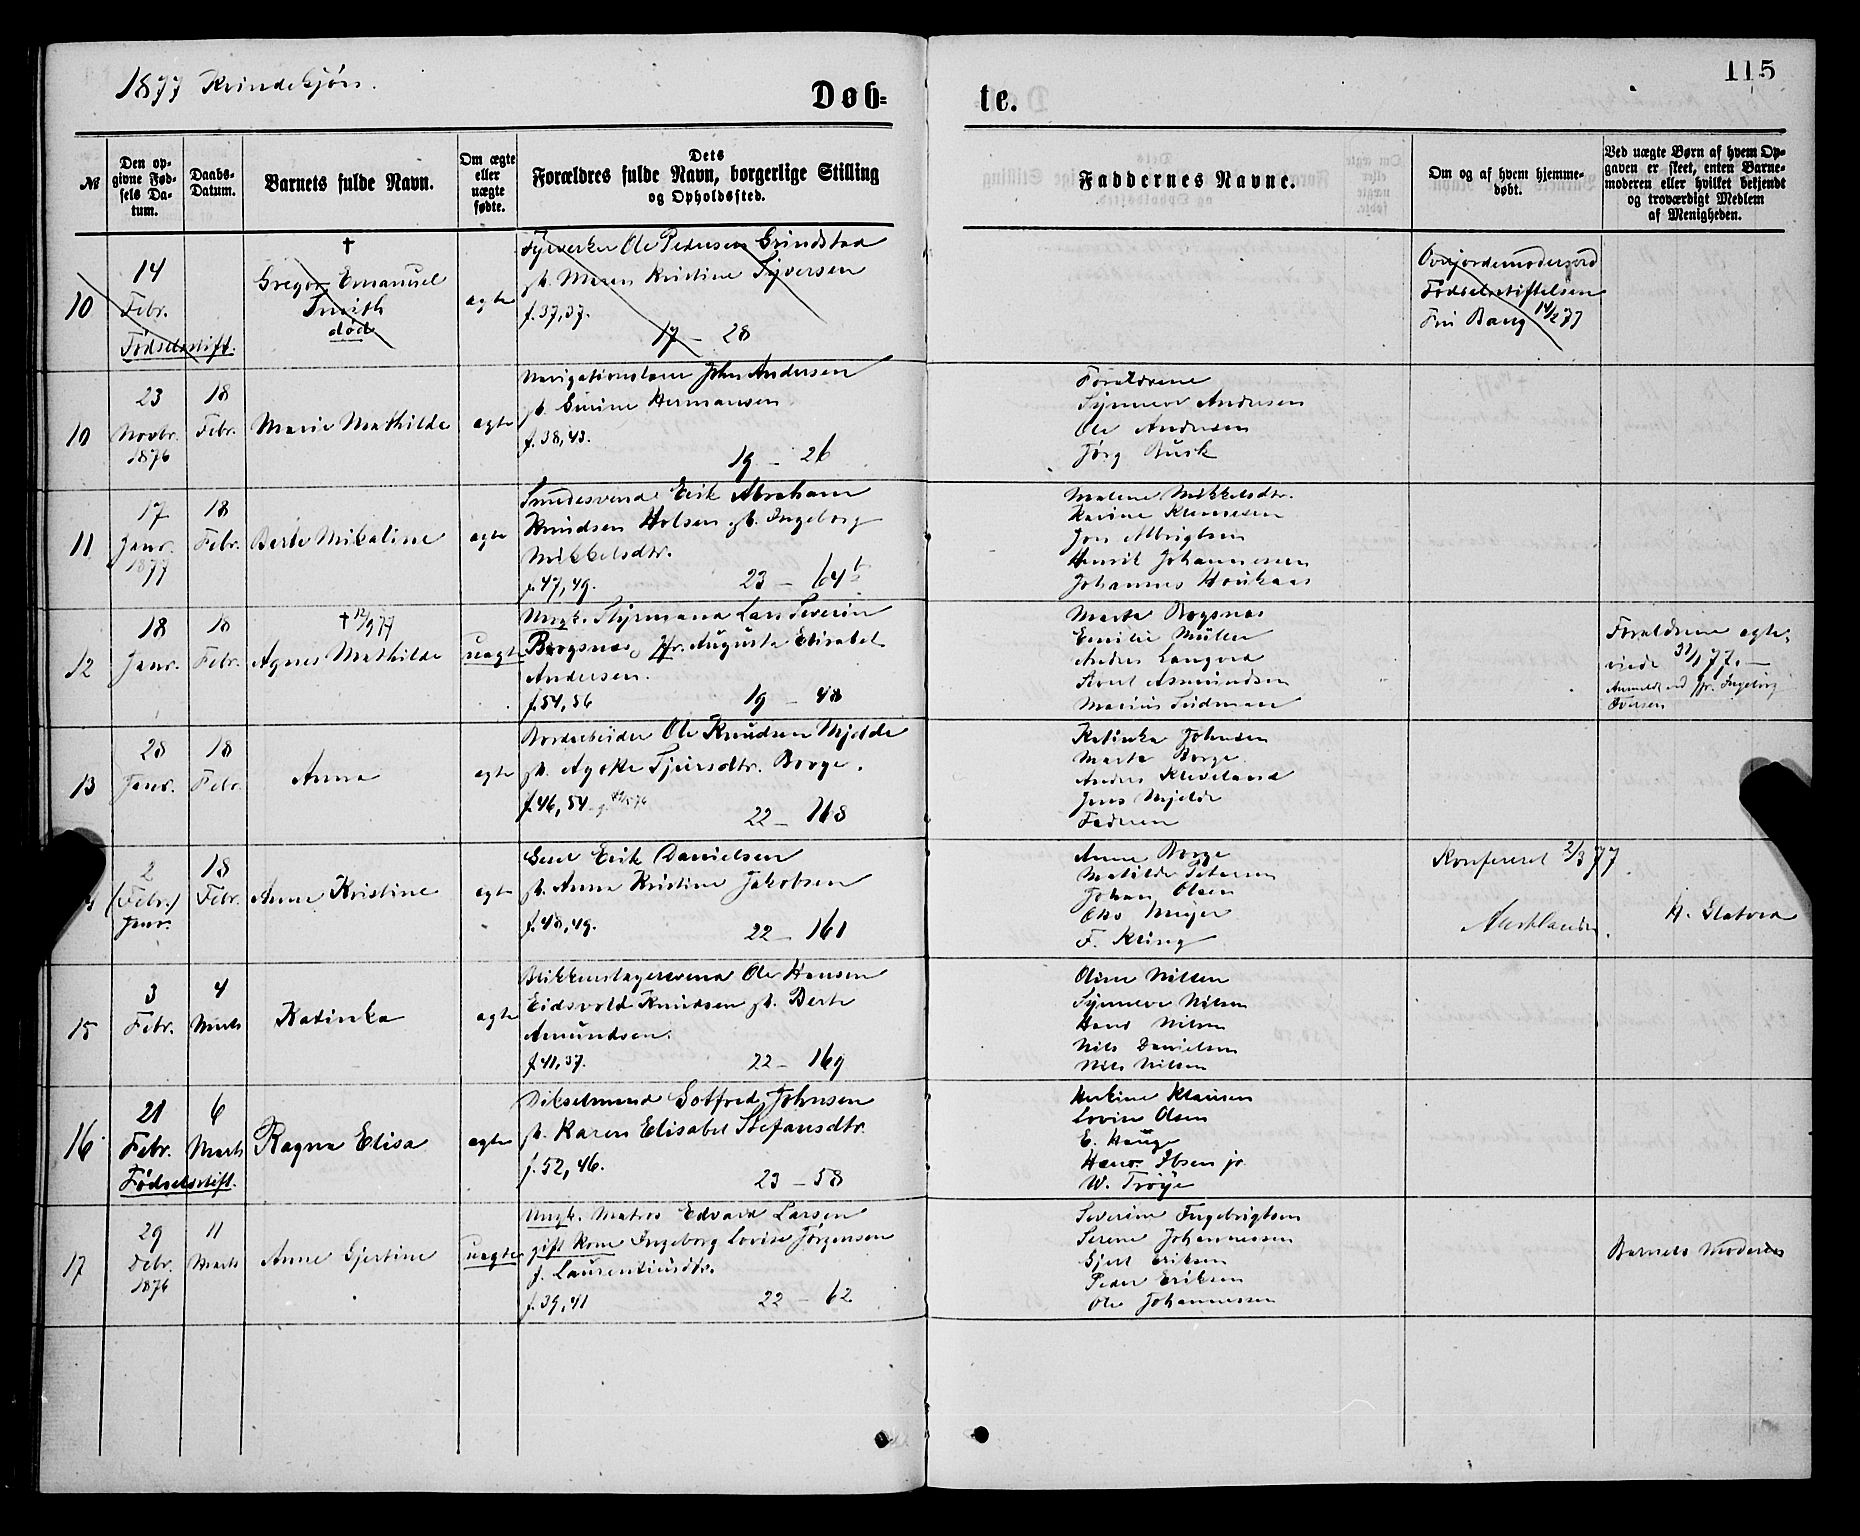 1877 Kvindekjøn.
Døb=
te.
115
№
Den op-
givne Fød-
sels Da-
tum.
Daabs-
Datum.
Barnets fulde Navn.
Om ægte
eller
uægte
fødte.
Dets
Forældres fulde Navn, borgerlige Stilling
og Opholdssted.
Faddernes Navne.
Om og af hvem hjemme-
døbt.
Ved uægte Børn af hvem Op-
gaven er skeet, enten Barne-
moderen eller hvilket bekjendt
og troværdigt Medlem
af Menigheden.
10
14
Febr.
Fødselsstift.
†
Gregor Emanuel
Smith
død
ægte
Fyrverker Ole Pedersen Grindstad
f. 37, 37.
17 – 28
Overjordemoder
Fødselsstiftelsen
14/2 77
10
23
Novbr.
1876
18
Febr.
Marie Mathilde
ægte
John Andersen
Hermansen
f. 38, 43.
19 – 26
Forældrene
Synneve Andersen
Ole Andersen
Jørg Busk
11
17
Janr.
1877
18
Febr.
Berte Mikaline
ægte
Smedesvend Erik Abraham
Knudsen Holsen gb. Ingeborg
Mikkelsdtr.
f. 47, 49.
23 – 64b
Malene Mikkelsdtr.
Karine Klemetsen
Jon Albrigtsen
Henrik Johannesen
Johannes Houkaas
12
18
Janr.
18
Febr.
† 12/9 77
Agnes Mathilde
uægte
Ungk. Styrmand Lars Severin
Borgsnæs, Pr. Augusta Elisabet
Andersen.
f. 54, 56
19 – 48
Marta Borgsnæs
Emilie Müller
Andres Langøen
Sivert Asmundsen
Forældrene ægte-
viede 31/1 77. –
Anmeldt ved Pr. Ingeborg
Iversen
13
28
Janr.
18
Febr.
Anna
ægte
Bordarbeider Ole Knudsen Mjelde
Borge.
f. 46, 54
22 – 168
Katinka Johnsen
Marta Borge
Andres Kleveland
Jens Mjelde
Faderen
2
(Febr.)
Janr.
18
Febr.
Anne Kristine
ægte
Erik Danielsen
gb. Anna Kristine Jakobsen
f. 48, 49.
22 – 161
Anne Borge
Matilde Petersen
Johan Olsen
Otto Meyer
F. Kling
Konfereret 2/3 77.
15
3
Febr.
4
Marts
Katinka
ægte
Blikkenslagersvend Ole Hansen
Eidsvold Knudsen gb. Berte
Amundsen.
f. 41, 37.
22 – 169
Oline Nilsen
Synneve Nilsen
Hans Nilsen
Nils Danielsen
Nils Nilsen
16
21
Febr.
Fødselsstift.
6
Marts
Ragna Elisa
ægte
Gotfred Johnsen
gb. Karen Elisabet Stefansdtr.
f. 52, 46.
23 – 58
Klausen
Lovise Olsen
E. Hauge
Hans Ibsen jr
W. Trøye
17
29
Debr.
1876
11
Marts
Anne Gjertine
uægte
Ungk. Matros Edvard Larsen
gift Kone Ingeborg Lovise Jørgensen
f. Laurentiusdtr.
f. 39, 41
22 – 62
Severine Ingebrigtsen
Serine Johannessen
Gjert Eriksen
Peder Eriksen
Ole Johannessen
Barnets Moder